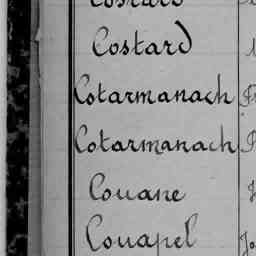 Costard
Cotarmanach
Cotarmanach
Couane
Couapel